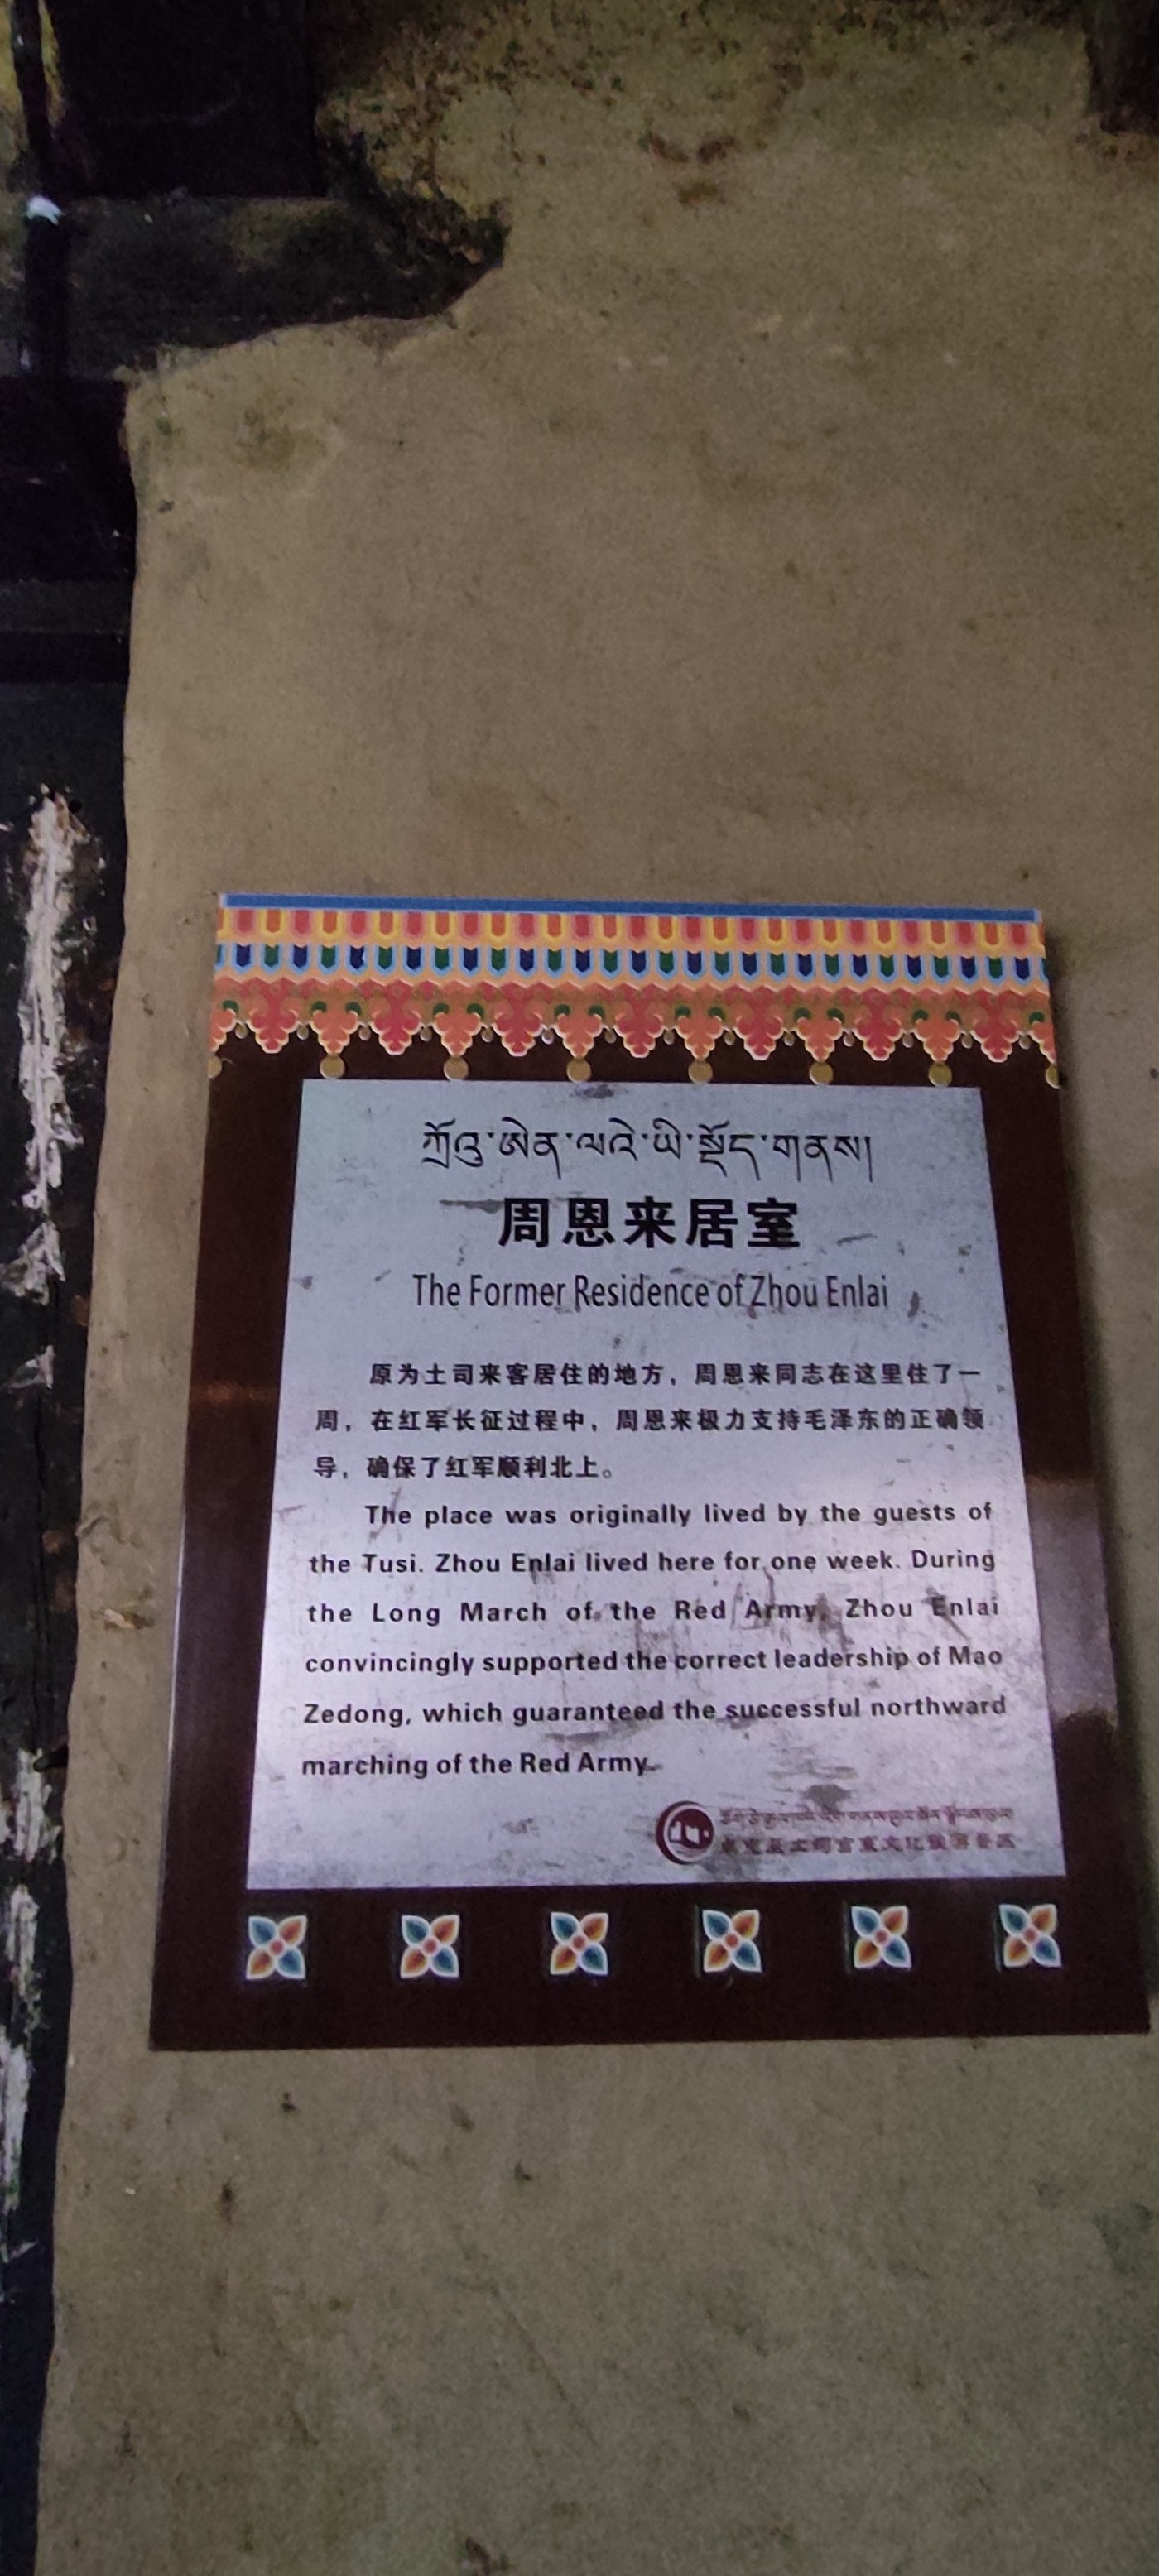 ཀྲོའུ་ཨེན་ལའེ་ཡི་སྡོད་གནས།
周恩来居室
The Former Residence of Zhou Enlai
原为土司来客居住的地方，周恩来同志在这里住了一
周，在红军长征过程中，周恩来极力支持毛泽东的正确领
导，确保了红军顺利北上。
The place was originally lived by the guests of
the Tusi. Zhou Enlai lived here for one week. During
the Long March of the Red Army, Zhou Enlai
convincingly supported the correct leadership of Mao
Zedong, which guaranteed the successful northward
marching of the Red Army.